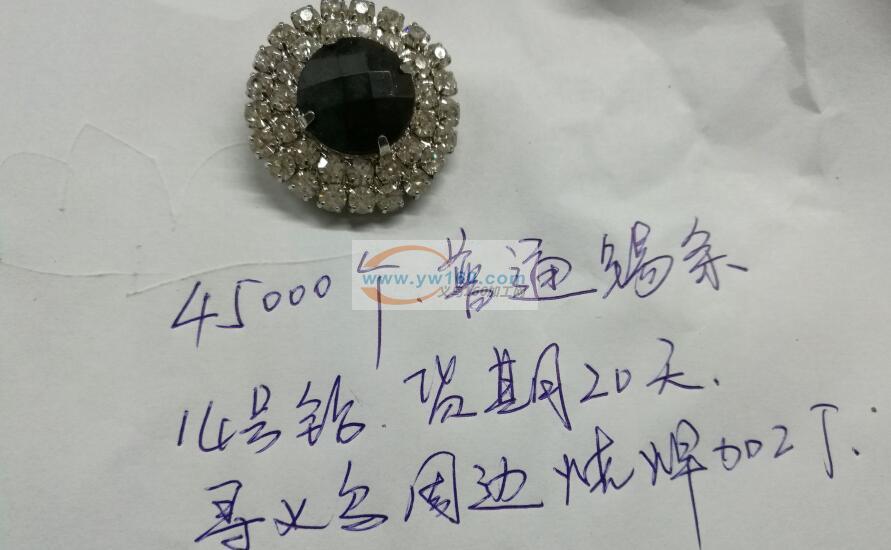 45000个.普通锡条
www.yw160.com
义乌160加工网
14号钻.货期20天.
寻义乌周边烧焊加工厂.